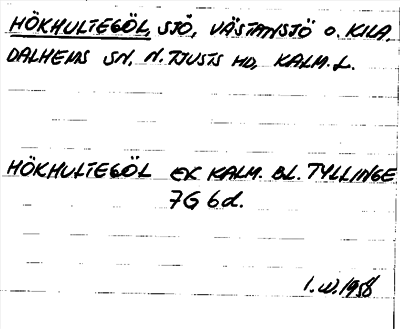 HÖKHULTEGÖL, SJÖ, VÄSTANSJÖ O. KILA,
DALHEMS SN, N. TJUSTS HD, KALM. L.
HÖKHULTEGÖL EK KALM. BL. TYLLINGE
7G 6d.
I.W. 1958